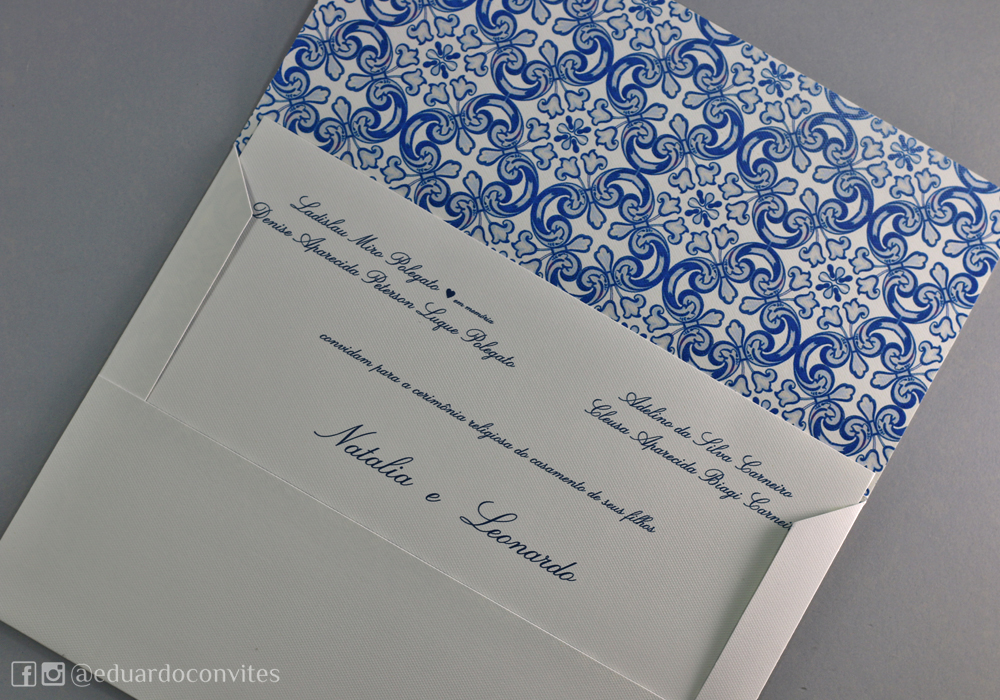 Ladislau Miro Polegato ♥ em memória
Denise Aparecida Peterson Luque Polegato
Adelino da Silva Carneiro
Cleusa Aparecida Biagi Carnei
convidam para a cerimônia religiosa do casamento de seus filhos
Natalia e Leonardo
@eduardoconvites